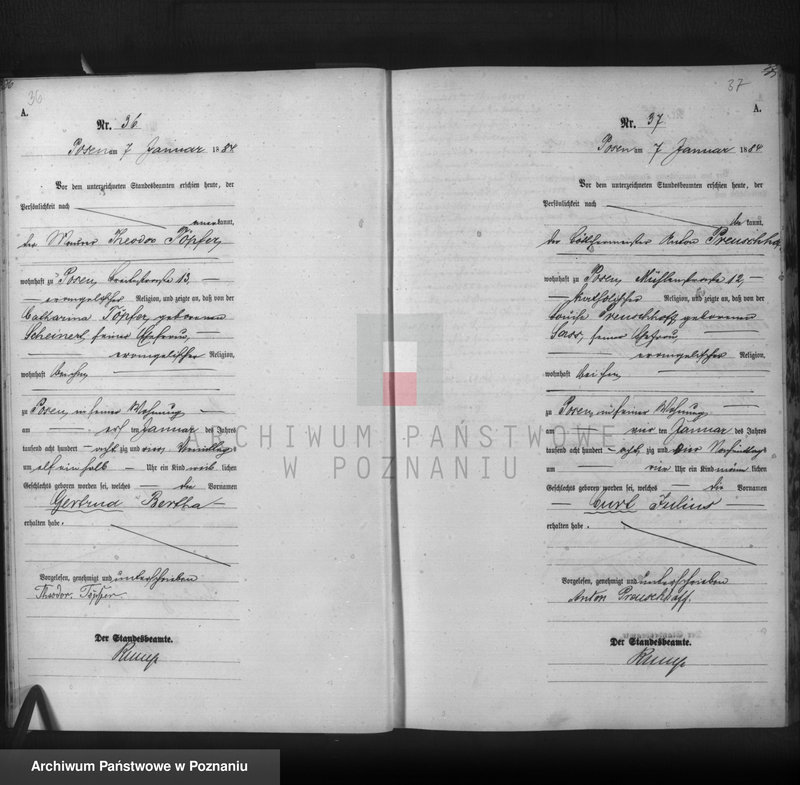 36
A.
Nr. 36
Posen am 7 Januar 1884
Vor dem unterzeichneten Standesbeamten erschien heute, der
Persönlichkeit nach
kannt,
der Theodor Töpfer,
wohnhaft zu Posen, Breitestrasse 13,
evangelischer Religion, und zeigte an, daß von der
Catharina Töpfer, geborenen
Scheinert, seiner Ehefrau,
evangelischer Religion,
wohnhaft bei ihm,
zu Posen, in seiner Wohnung
am ten Januar des Jahres
tausend acht hundert achtzig und vier Vormittags
um elf ein halb Uhr ein Kind weiblichen
Geschlechts geboren worden sei, welches die Vornamen
Gertrud Bertha
erhalten habe.
Vorgelesen, genehmigt und unterschrieben
Theodor Töpfer.
Der Standesbeamte.
37
A.
Nr. 37
Posen am 7 Januar 1884
Vor dem unterzeichneten Standesbeamten erschien heute, der
Persönlichkeit nach
be kannt,
der Böttchermeister Anton Preuschhoff,
wohnhaft zu Posen, Mühlenstrasse 12,
katholischer Religion, und zeigte an, daß von der
Louise Preuschhoff, geborenen
Sass, seiner Ehefrau,
evangelischer Religion,
wohnhaft bei ihm,
zu Posen, in seiner Wohnung
am vier ten Januar des Jahres
tausend acht hundert achtzig und vier Nachmittags
um vier Uhr ein Kind männlichen
Geschlechts geboren worden sei, welches die Vornamen
Curt Julius
erhalten habe.
Vorgelesen, genehmigt und unterschrieben
Anton Preuschhoff.
Der Standesbeamte.
ARCHIWUM PAŃSTWOWE
W POZNANIU
Archiwum Państwowe w Poznaniu